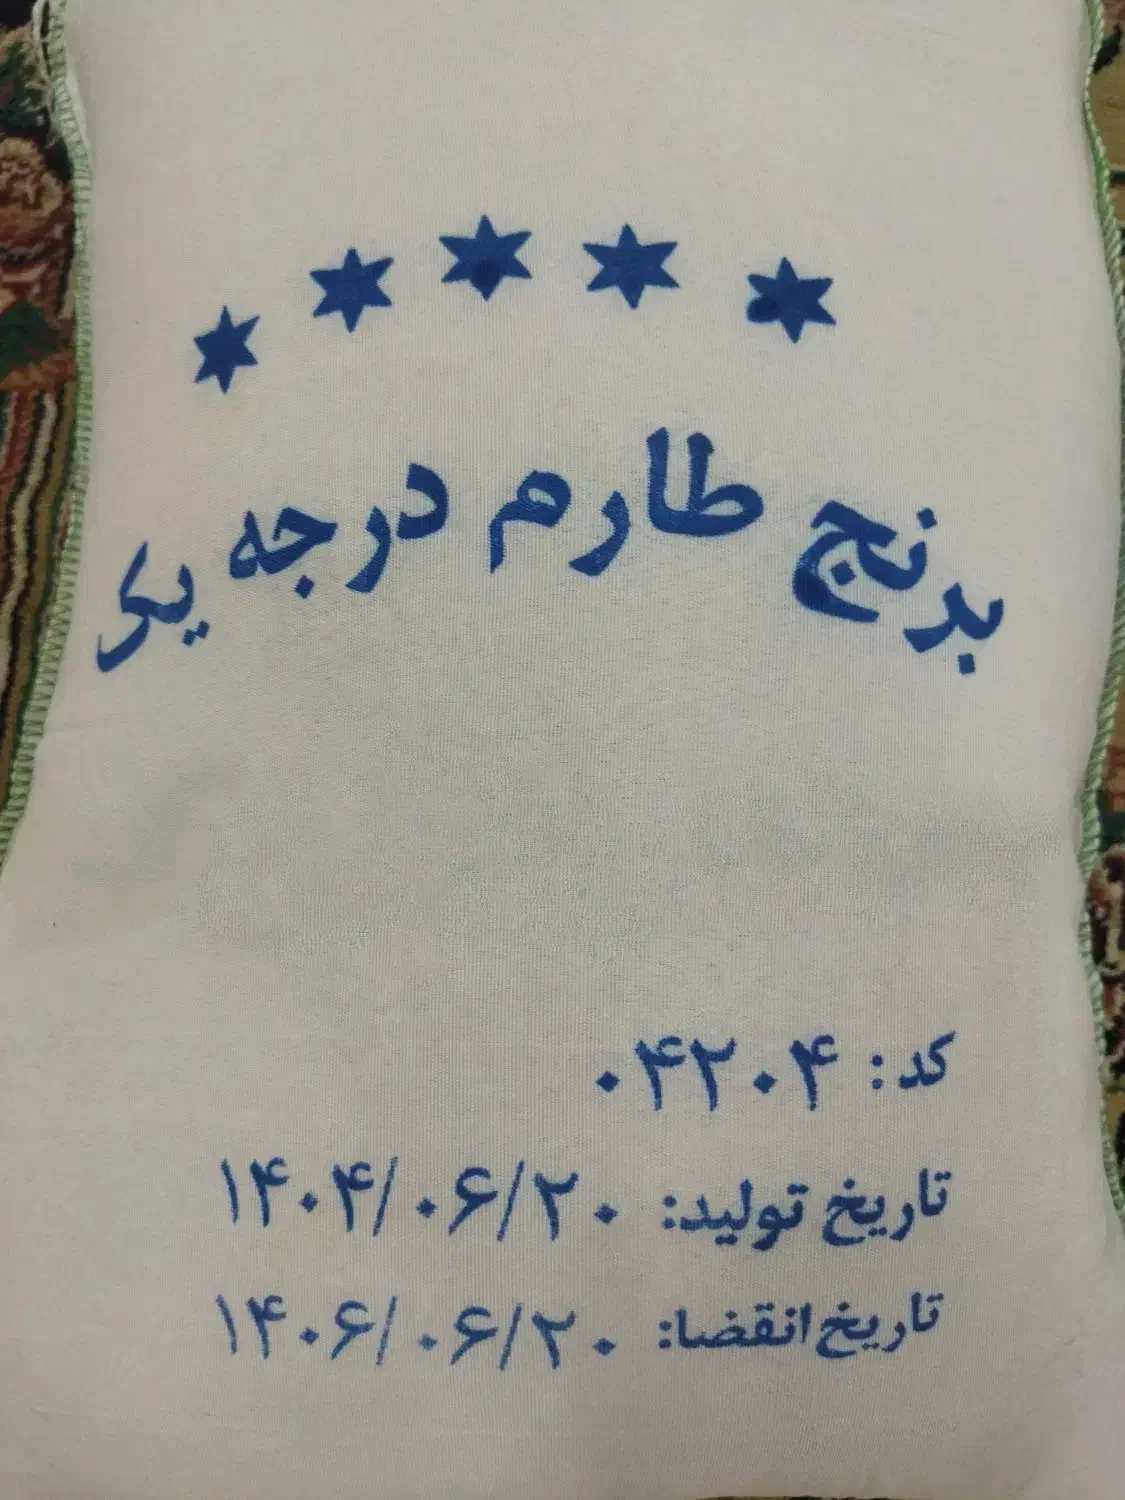 برنج طارم درجه یک
کد: ۰۴۲۰۴
تاریخ تولید: ۱۴۰۴/۰۶/۲۰
تاریخ انقضا: ۱۴۰۶/۰۶/۲۰